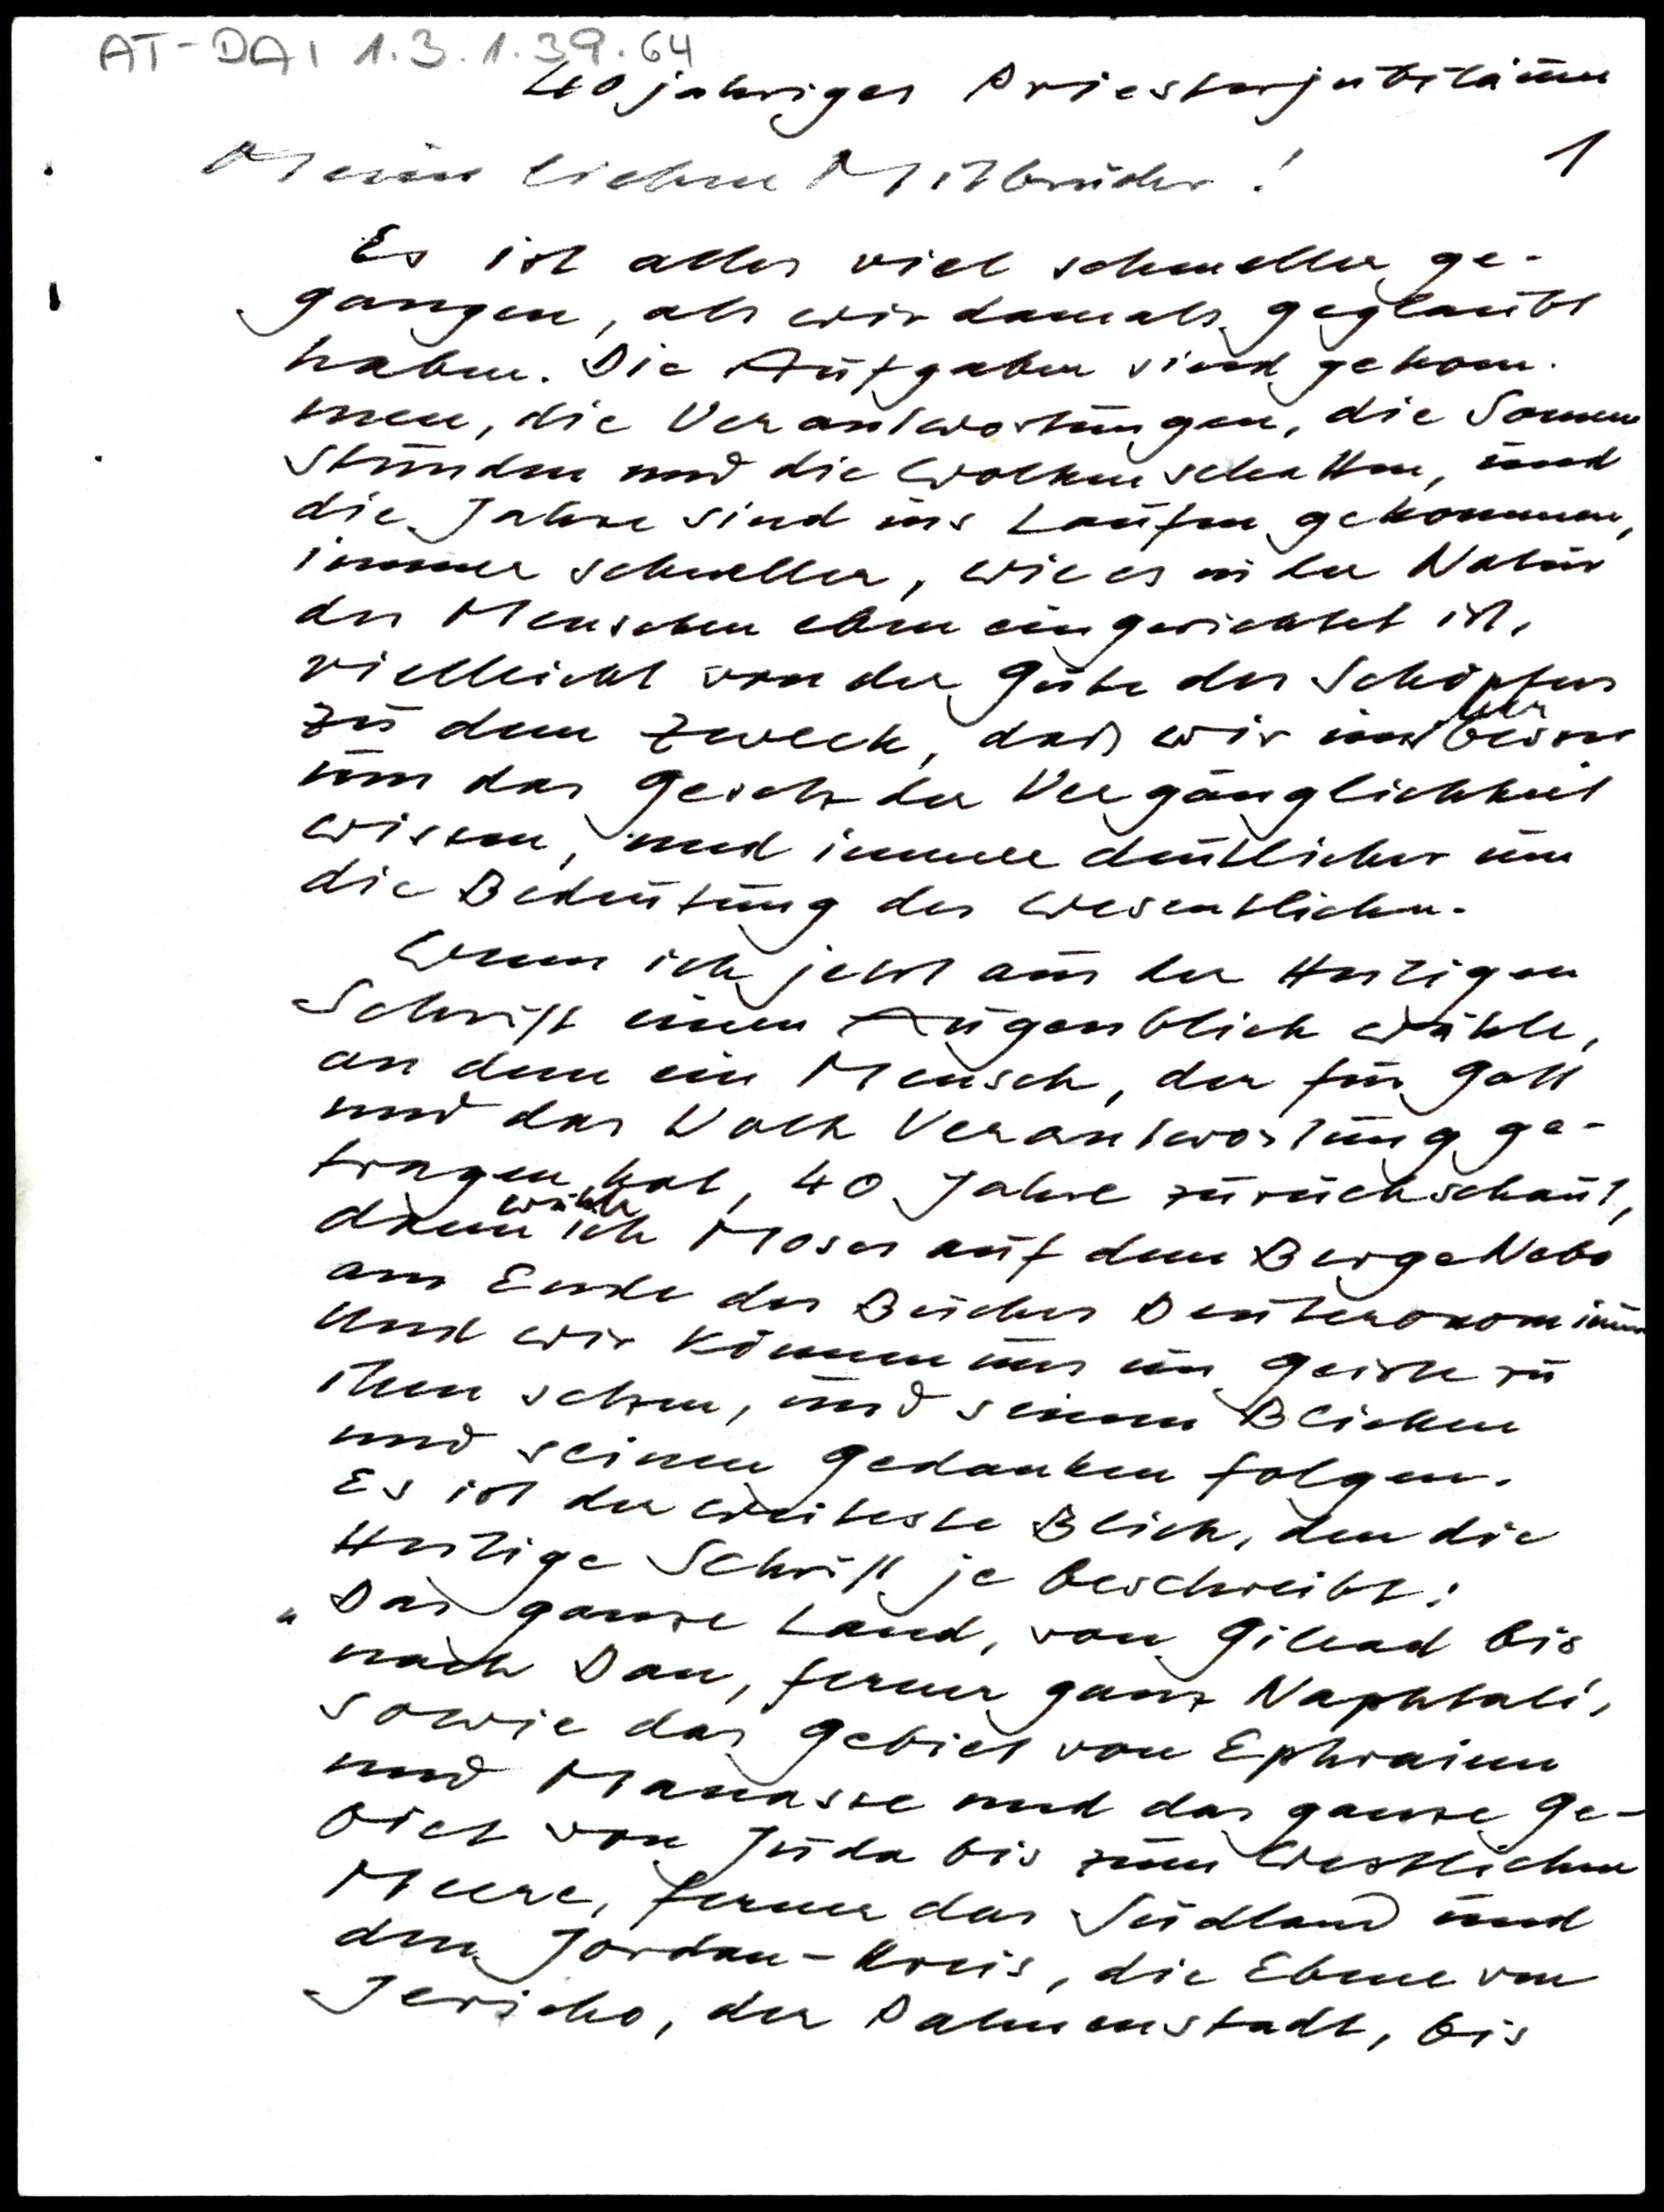 AT-DAI 1.3.1.39.64
40 jähriges Priesterjubiläum
1
Meine lieben Mitbrüder!
Es ist alles viel schneller ge-
gangen, als wir damals geglaubt
haben. Die Aufgaben sind gekom-
men, die Verantwortungen, die Sonnen
stunden und die Wolkenschatten, und
die Jahre sind ins Laufen gekommen,
immer schneller, wie es in der Natur
des Menschen eben eingerichtet ist,
vielleicht von der Güte des Schöpfers
zu dem Zweck, daß wir immer besser
um das Gesetz der Vergänglichkeit
wissen, und immer deutlicher um
die Bedeutung des Wesentlichen.
Wenn ich jetzt aus der Heiligen
Schrift einen Augenblick wähle,
an dem ein Mensch, der für Gott
und das Volk Verantwortung ge-
tragen hat, 40 Jahre zurückschaut,
dann wähle ich Moses auf dem Berge Nebo
am Ende des Buches Deuteronomium
Und wir können uns im Geiste zu
ihm setzen, und seinen Blicken
und seinen Gedanken folgen.
Es ist der weiteste Blick, den die
Heilige Schrift je beschreibt:
"Das ganze Land, von Gilead bis
nach Dan, ferner ganz Naphtali,
sowie das Gebiet von Ephraim
und Manasse und das ganze Ge-
biet von Juda bis zum Westlichen
Meere, ferner das Südland und
den Jordan-Kreis, die Ebene von
Jericho, der Palmenstadt, bis